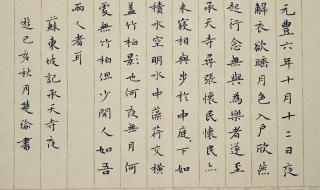 元豐六年十月十二日夜
解衣欲睡月色入戶欣然
起行念無與為樂者遂至
承天寺尋張懷民亦
未寢相與步於中庭〻下如
積水空明水中藻荇交橫
蓋竹柏影也何夜無月何
處無竹柏但少閒人如吾
兩人者耳
蘇東坡記承天寺夜
遊己亥秋月楚書